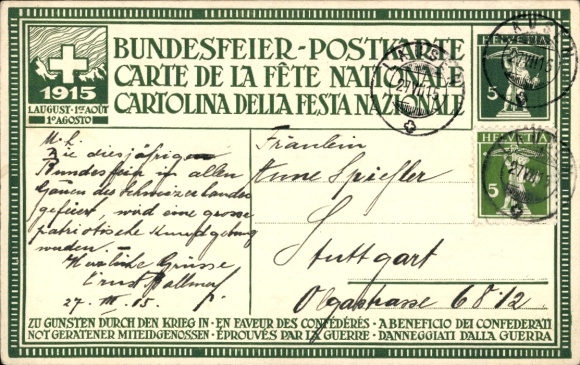 BUNDESFEIER-POSTKARTE
CARTE DE LA FÊTE NATIONALE
CARTOLINA DELLA FESTA NAZIONALE
1915
1. AUGUST · 1ER AOÛT
1º AGOSTO
HELVETIA
5
HELVETIA
5
27.VII.15
M. L.
Die diesjährige
Bundesfeier in allen
Gauen des Schweizerlandes
gefeiert, wird eine grosse
patriotische Kundgebung
werden. –
Herzliche Grüsse
Ernst
27. VII. 15.
Fräulein
Anne Spiessler
Stuttgart
Olgastrasse 68 12
ZU GUNSTEN DURCH DEN KRIEG IN · EN FAVEUR DES CONFÉDÉRÉS · A BENEFICIO DEI CONFEDERATI
NOT GERATENER MITEIDGENOSSEN · ÉPROUVÉS PAR LA GUERRE · DANNEGGIATI DALLA GUERRA